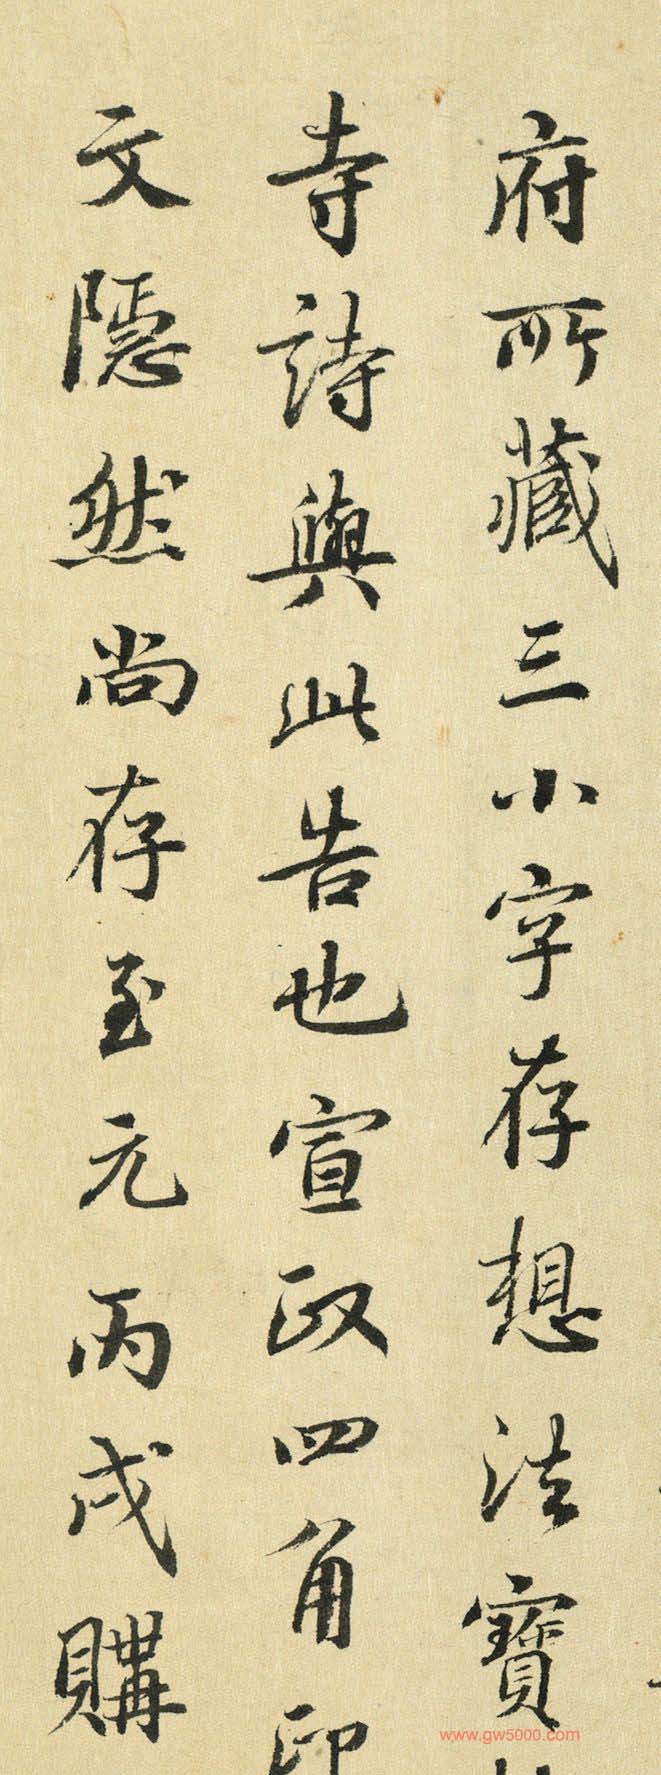 府所藏三小字存想法寶
寺詩與此告也宣政四角印
文隱然尚存至元丙戌購
www.gw5000.com